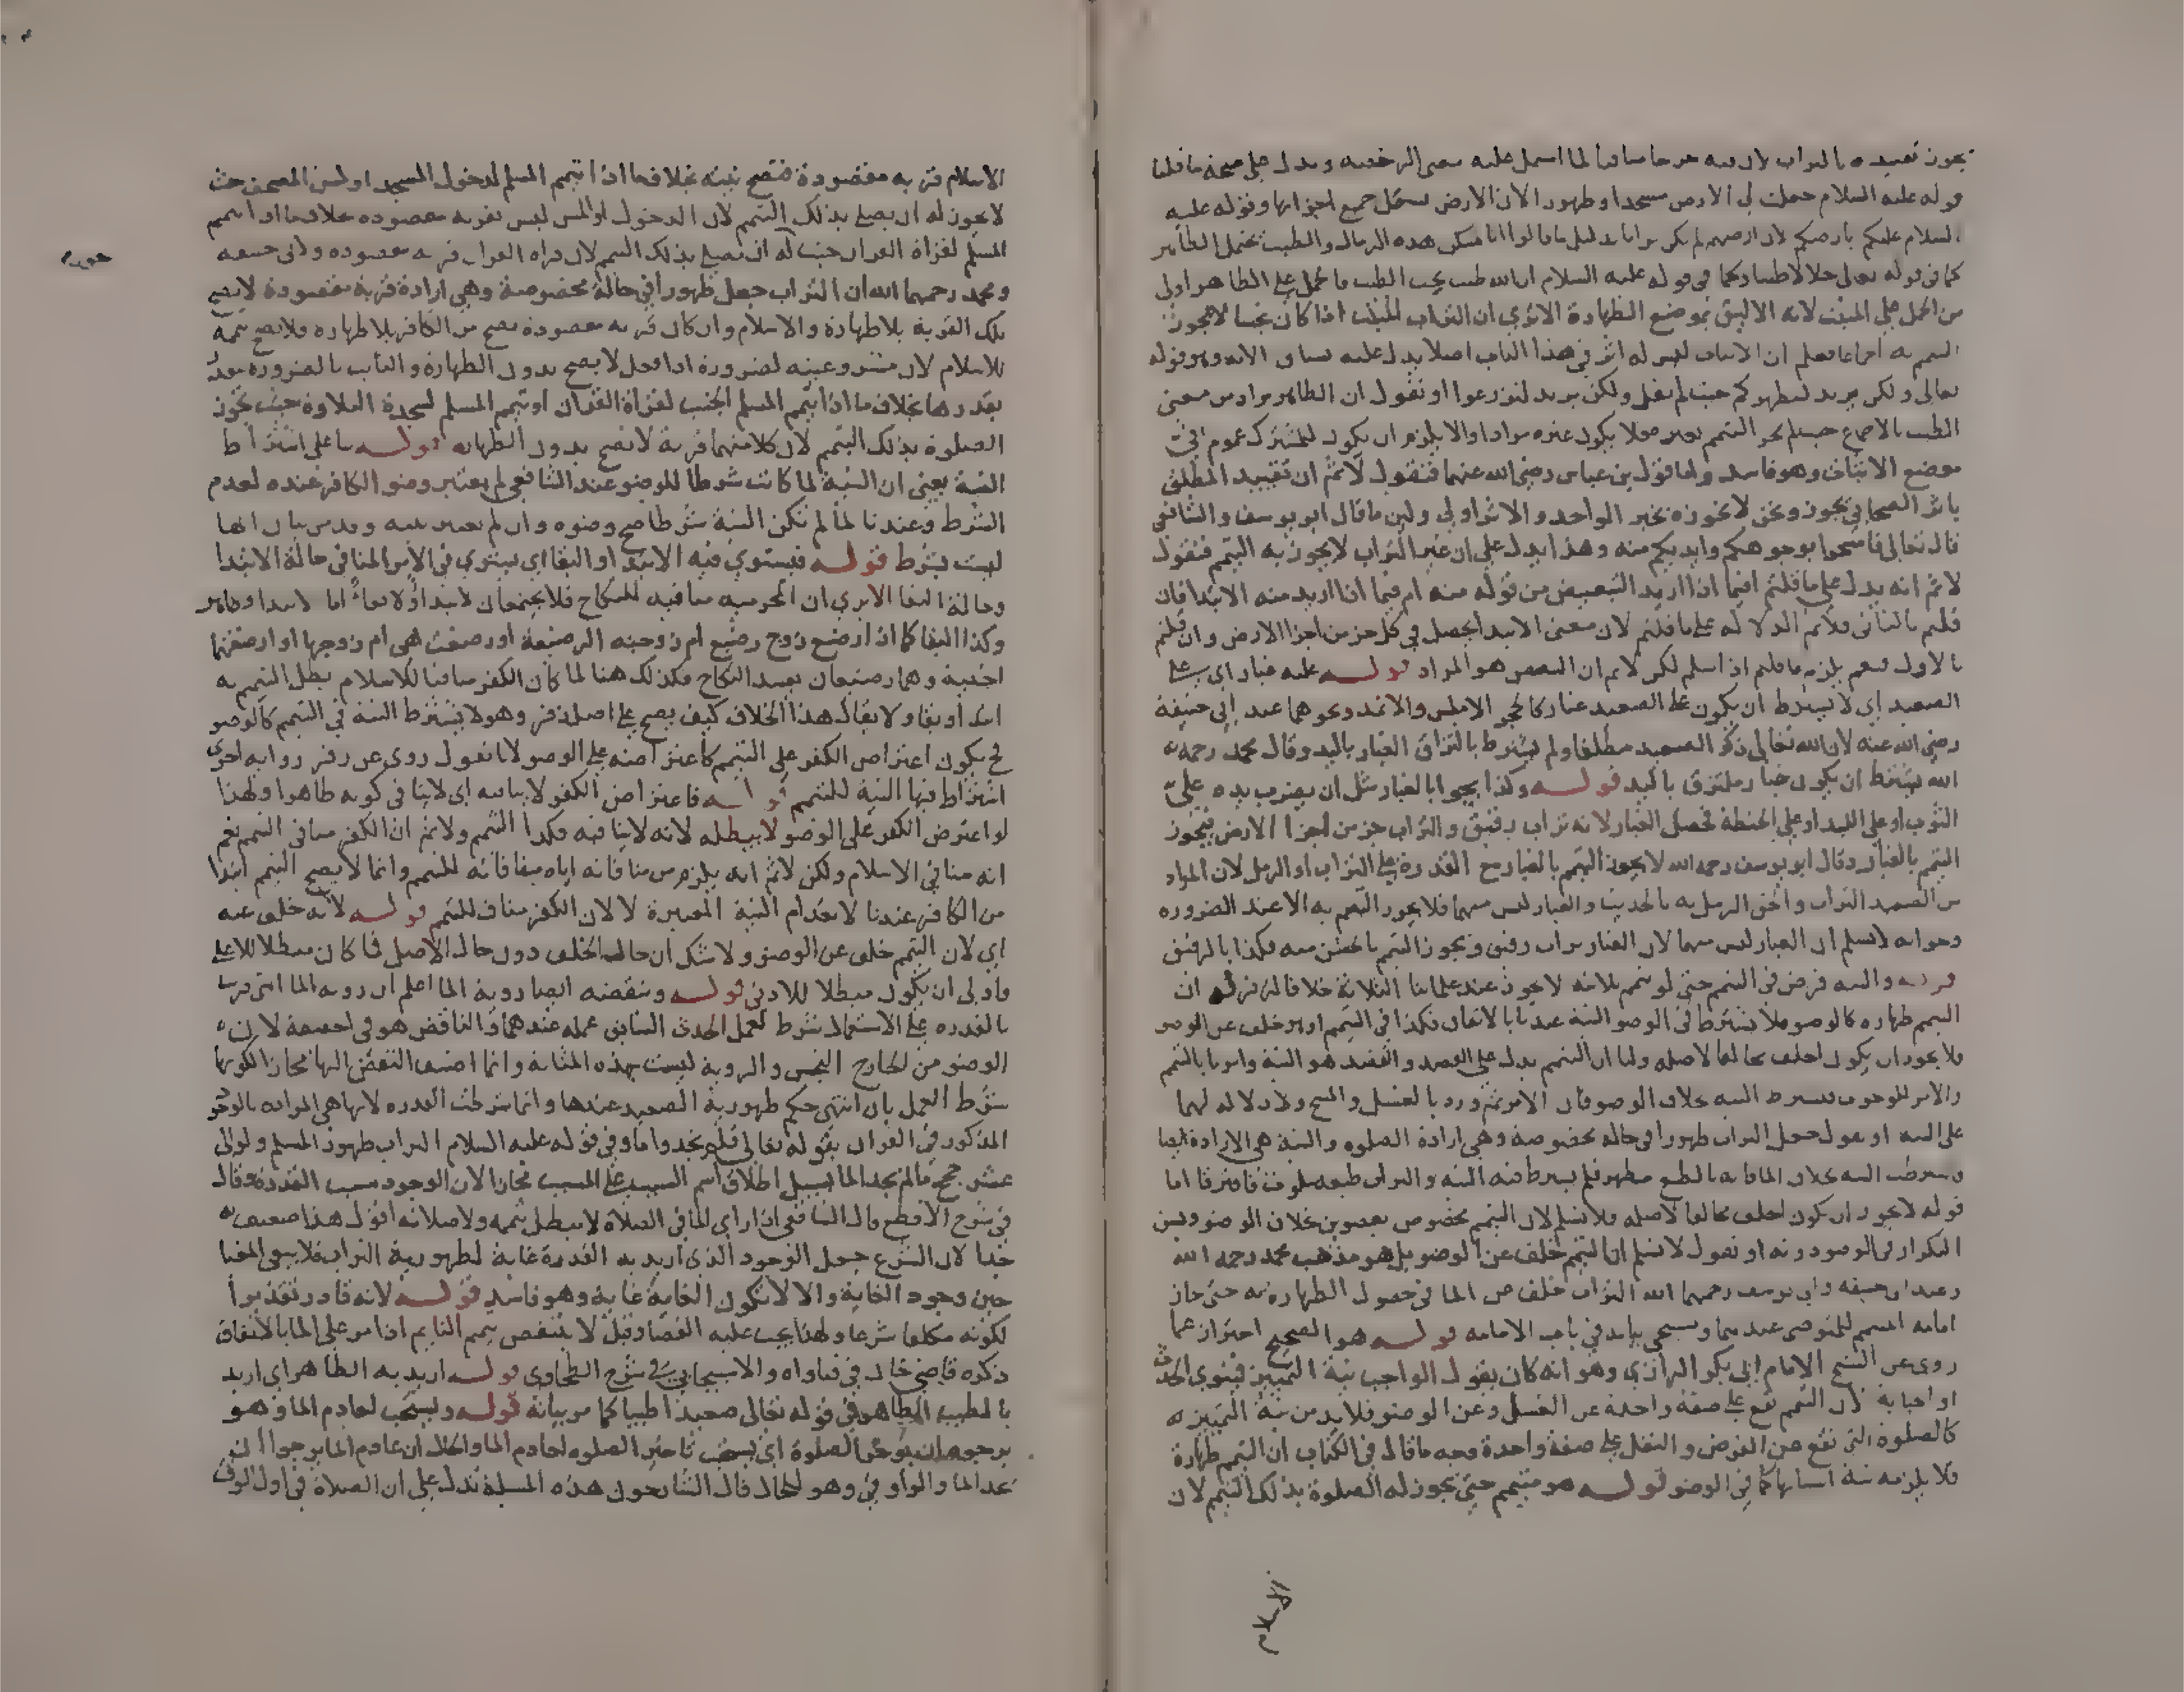 يجوز تقييده بالتراب لان فيه حرجا منافيا لما اشتمل عليه معنى الرخصة ويدل على صحة ما قلنا
قوله عليه السلام جعلت لي الارض مسجدا وطهورا لان الارض بجميع اجزائها وقوله عليه
السلام عليكم بارضكم لان ارضهم لم يكن ترابا بدليل ما قالوا انا نسكن هذه الرمال والطيب يحتمل الطاهر
كما في قوله تعالى حلالا طيبا وكما في قوله عليه السلام ان الله طيب يحب الطيب فالحمل على الطاهر اولى
من الحمل على المنبت لانه الاليق بموضع الطهارة الا ترى ان التراب المنبت اذا كان نجسا لا يجوز
التيمم به اجماعا فعلم ان الانبات ليس له اثر في هذا الباب اصلا يدل عليه سياق الاية وهو قوله
تعالى ولكن يريد ليطهركم حيث لم يقل ولكن يريد لتزرعوا او نقول ان الطاهر مراد من معنى
الطيب بالاجماع حيث لم يجز التيمم بغيره فلا يكون غيره مرادا والا يلزم ان يكون للمشترك عموم في
موضع الاثبات وهو فاسد واما قول بن عباس رضي الله عنهما فنقول لا نم ان تقييد المطلق
باثر الصحابي يجوز ونحن لا نجوزه بخبر الواحد والاثر اولى ولئن ما قال ابو يوسف والشافعي
قال تعالى فامسحوا بوجوهكم وايديكم منه وهذا يدل على ان غير التراب لا يجوز به التيمم فنقول
لا نم انه يدل على ما قلتم انما اذا اريد التبعيض من قوله منه ام فيما اذا اريد منه الابتدا فان
قلتم بالثاني فلا نم الدلالة على ما قلتم لان معنى الابتدا يحصل في كل جز من اجزا الارض وان قلتم
بالاول فنعم يلزم ما قلتم اذا سلم لكن لا نم ان التبعيض هو المراد قوله عليه غبار اي على
الصعيد اي لا يشترط ان يكون على الصعيد غبار كالحجر الاملس والاثمد ونحوهما عند ابي حنيفة
رضي الله عنه لان الله تعالى ذكر الصعيد مطلقا ولم يشترط بالتزاق الغبار باليد وقال محمد رحمه
الله يشترط ان يكون غبار ملتزق باليد قوله وكذا يجوز بالغبار مثل ان يضرب يده على
الثوب او على اللبد او على الحنطة فحصل الغبار لانه تراب رقيق والتراب جز من اجزا الارض فيجوز
التيمم بالغبار وقال ابو يوسف رحمه الله لا يجوز التيمم بالغبار مع القدرة على التراب او الرمل لان المراد
من الصعيد التراب والحق الرمل به بالحديث والغبار ليس منهما فلا يجوز التيمم به الا عند الضرورة
وجوابه لا نسلم ان الغبار ليس منهما لان الغبار تراب رقيق ويجوز التيمم بالخشن منه فكذا بالرقيق
قوله والنية فرض في التيمم حتى لو تيمم بلا نية لا يجوز عند علمائنا الثلاثة خلافا لزفر له ان
التيمم طهارة كالوضو فلا يشترط في الوضو النية عندنا بالاتفاق فكذا في التيمم اذ هو خلف عن الوضو
ولا يجوز ان يكون الخلف مخالفا لاصله ولنا ان التيمم يدل على القصد والقصد هو النية وامرنا بالتيمم
والامر للوجوب فيشترط النية بخلاف الوضو فان الامر ثم ورد بالغسل والمسح ولا دلالة لهما
على النية او نقول جعل التراب طهورا في حالة مخصوصة وهي ارادة الصلوة والنية هي الارادة ايضا
فشرطت النية بخلاف الما فانه بالطبع مطهر فلم يشترط فيه النية والتراب طبعه ملوث فافترقا اما
قوله لا يجوز ان يكون الخلف مخالفا لاصله فلا نسلم لان التيمم مخصوص بعضوين بخلاف الوضو وسن
التكرار في الوضو دونه او نقول لا نسلم ان التيمم خلف عن الوضو بل هو مذهب محمد رحمه الله
وعند ابي حنيفة وابي يوسف رحمهما الله التراب خلف عن الما في حصول الطهارة به حتى جاز
امامة المتيمم للمتوضي عندهما وسيجي بيانه في باب الامامة قوله هو الصحيح احتراز عما
روى عن الشيخ الامام ابي بكر الرازي وهو انه كان يقول الواجب نية التمييز فينوي الحدث
او الجنابة لان التيمم يقع على صفة واحدة عن الغسل وعن الوضو فلا بد من نية التمييز
كالصلوة التي تقع عن الفرض والنفل على صفة واحدة وجه ما قال في الكتاب ان التيمم طهارة
فلا يلزمه نية اسبابها كما في الوضو قوله هو متيمم حتى يجوز له الصلوة بذلك التيمم لان
الاسلام
الاسلام قربة مقصودة فتصح نيته بخلاف ما اذا تيمم المسلم لدخول المسجد او لمس المصحف حيث
لا يجوز له ان يصلي بذلك التيمم لان الدخول او المس ليس بقربة مقصودة بخلاف ما اذا تيمم
المسلم لقراة القران حيث له ان يصلي بذلك التيمم لان قراة القران قربة مقصودة ولابي حنيفة
ومحمد رحمهما الله ان التراب جعل طهورا في حالة مخصوصة وهي ارادة قربة مقصودة لا يصح
تلك القربة بلا طهارة والاسلام وان كان قربة مقصودة يصح من الكافر بلا طهارة فلا يصح تيممه
للاسلام لان مشروعيته لضرورة اداء فعل لا يصح بدون الطهارة والثابت بالضرورة يتقدر
بقدرها بخلاف ما اذا تيمم المسلم الجنب لقراة القران او تيمم المسلم لسجدة التلاوة حيث تجوز
الصلوة بذلك التيمم لان كلا منهما قربة لا تصح بدون الطهارة قوله بنا على اشتراط
النية يعني ان النية لما كانت شرطا للوضو عند الشافعي لم يعتبر وضو الكافر عنده لعدم
الشرط وعندنا لما لم تكن النية شرطا صح وضوه وان لم يعتبر نيته وقد مر بيان انها
ليست بشرط قوله فيستوي فيه الابتدا والبقا اي يستوي في الامر المنافي حالة الابتدا
وحالة البقا الا يرى ان المحرمية منافية للنكاح فلا يجتمعان لا ابتداء ولا بقاء اما الابتدا وظاهر
وكذا البقا كما اذا ارضع زوج رضيع ام زوجته الرضيعة او رضعت هي ام زوجها او ارضعتهما
اجنبية وهما رضيعان يفسد النكاح فكذلك هنا لما كان الكفر منافيا للاسلام يبطل التيمم به
ابتداء وبقاء ولا يقال هذا الخلاف كيف يصح على اصل زفر وهو لا يشترط النية في التيمم كالوضو
فح يكون اعتراض الكفر على التيمم كاعتراضه على الوضو لانا نقول روى عن زفر رواية اخرى
اشتراط فيها النية للتيمم قوله فاعتراض الكفر لا ينافيه اي لا ينافي كونه طاهرا ولهذا
لو اعترض الكفر على الوضو لا يبطله لانه لا ينافيه فكذا التيمم ولا نم ان الكفر منافي التيمم نعم
انه منافي الاسلام ولكن لا نم انه يلزم من منافاته اياه منافاته للتيمم وانما لا يصح التيمم ابتدا
من الكافر عندنا لانعدام النية المعتبرة لا لان الكفر مناف للتيمم قوله لانه خلف عنه
اي لان التيمم خلف عن الوضو ولا شك ان حال الخلف دون حال الاصل فما كان مبطلا للاعلى
فاولى ان يكون مبطلا للادنى قوله وينقضه ايضا روية الما اعلم ان روية الما التي قرنت
بالقدرة على الاستعمال شرط لعمل الحدث السابق عمله عندها والناقض هو في الحقيقة لا ن
الوضو من الخارج النجس والروية ليست بهذه المثابة وانما اضيف النقض اليها مجازا لكونها
شرط العمل بان انتهى حكم طهورية الصعيد عندها وانما شرطت القدرة لانها هي المرادة بالوجود
المذكور في القران بقوله تعالى فلم تجدوا ماء وفي قوله عليه السلام التراب طهور المسلم ولو الى
عشر حجج ما لم يجد الما بسبيل اطلاق اسم السبب على المسبب مجازا لان الوجود سبب القدرة وقال
في شرح الاقطع قال الشافعي اذا راى الما في الصلاة لا يبطل تيممه ولا صلاته اقول هذا ضعيف
جدا لان الشرع جعل الوجود الذي اريد به القدرة غاية لطهورية التراب فلا يبقى المغيا
حين وجود الغاية والا لا تكون الغاية غاية وهو فاسد قوله لانه قادر تقديرا
لكونه مكلفا شرعا ولهذا يجب عليه القضا وقيل لا ينتقض تيمم النايم اذا مر على الما بالاتفاق
ذكره قاضي خان في فتاواه والاسبيجابي في شرح الطحاوي قوله اريد به الطاهر اي اريد
بالطيب الطاهر في قوله تعالى صعيدا طيبا كما مر بيانه قوله ويستحب لعادم الما وهو
يرجوه ان يؤخر الصلوة اي يستحب تاخير الصلوه لعادم الما والحال ان عادم الما يرجوا ان
يجد الما والواو في وهو للحال قال الشارحون هذه المسلة تدل على ان الصلاة في اول الوقت